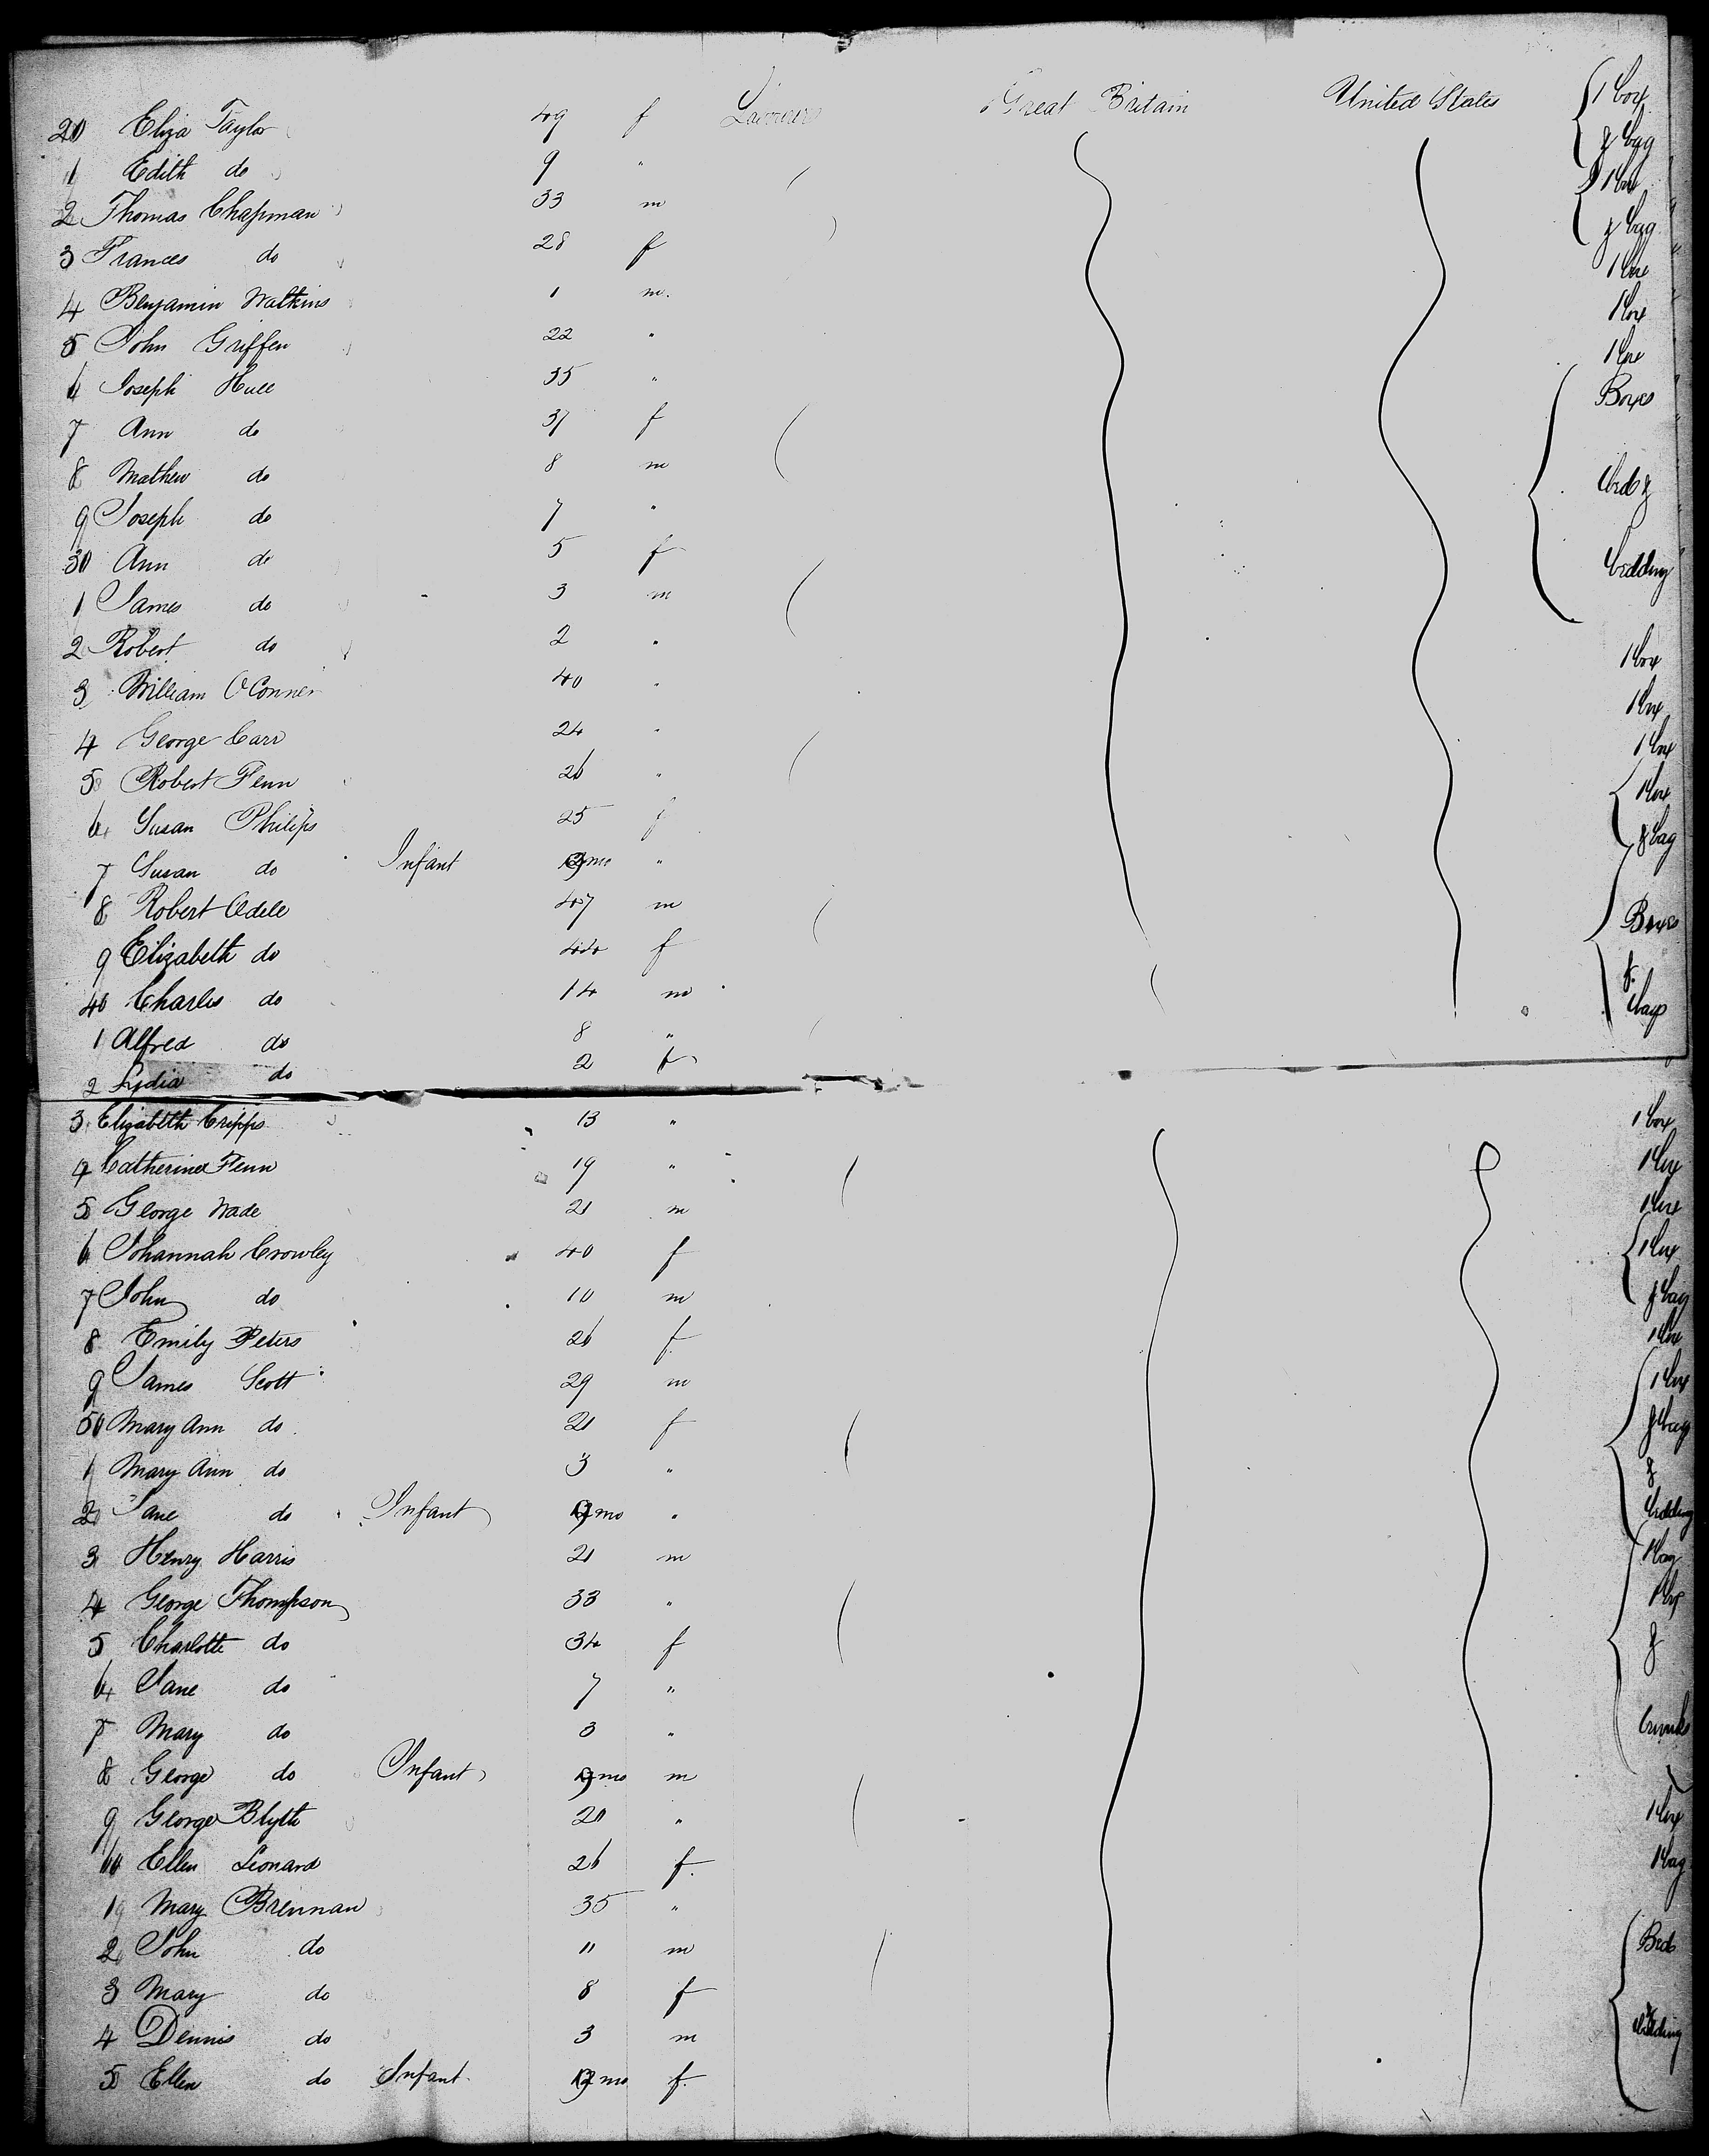 20 Eliza Taylor 49 f Labourer Great Britain United States 1 box
1 Edith do 9 " & bag
2 Thomas Chapman 33 m 1 box
3 Frances do 28 f & bag
4 Benjamin Watkins 1 m. 1 box
5 John Griffen 22 " 1 box
6 Joseph Hull 35 " 1 box
7 Ann do 37 f Boxes
8 Mathew do 8 m
9 Joseph do 7 " beds &
30 Ann do 5 f
1 James do 3 m bedding
2 Robert do 2 "
3 William O'Conner 40 " 1 box
4 George Carr 24 " 1 box
5 Robert Fenn 26 " 1 box
6 Susan Philips 25 f 1 box
7 Susan do Infant mo " & bag
8 Robert Odele 47 m
9 Elizabeth do 44 f Boxes
40 Charles do 14 m &
1 Alfred do 8 " bags
2 Lydia do 2 f
3 Elizabeth Cripps 13 " 1 box
4 Catherine Fenn 19 " 1 box
5 George Wade 21 m 1 box
6 Johannah Crowley 40 f 1 box
7 John do 10 m & bag
8 Emily Peters 26 f 1 box
9 James Scott 29 m 1 box
50 Mary Ann do 21 f & bag
1 Mary Ann do 3 " &
2 Jane do Infant mo " bedding
3 Henry Harris 21 m 1 bag
4 George Thompson 33 " 1 box
5 Charlotte do 34 f &
6 Jane do 7 "
7 Mary do 3 " trunks
8 George do Infant mo m
9 George Blyth 20 " 1 box
60 Ellen Leonard 26 f. 1 bag
1 Mary Brennan 35 "
2 John do 11 m Beds
3 Mary do 8 f
4 Dennis do 3 m & bedding
5 Ellen do Infant mo f.